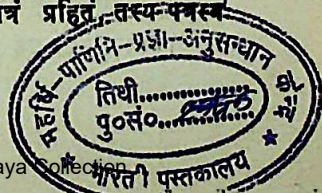 त्रं प्रहितं, तस्य पत्रस्य
महर्षि-पाणिनि-प्रज्ञा-अनुसन्धान
तिथी..............
पु०सं०..............
भारती पुस्तकालय
aya Collection